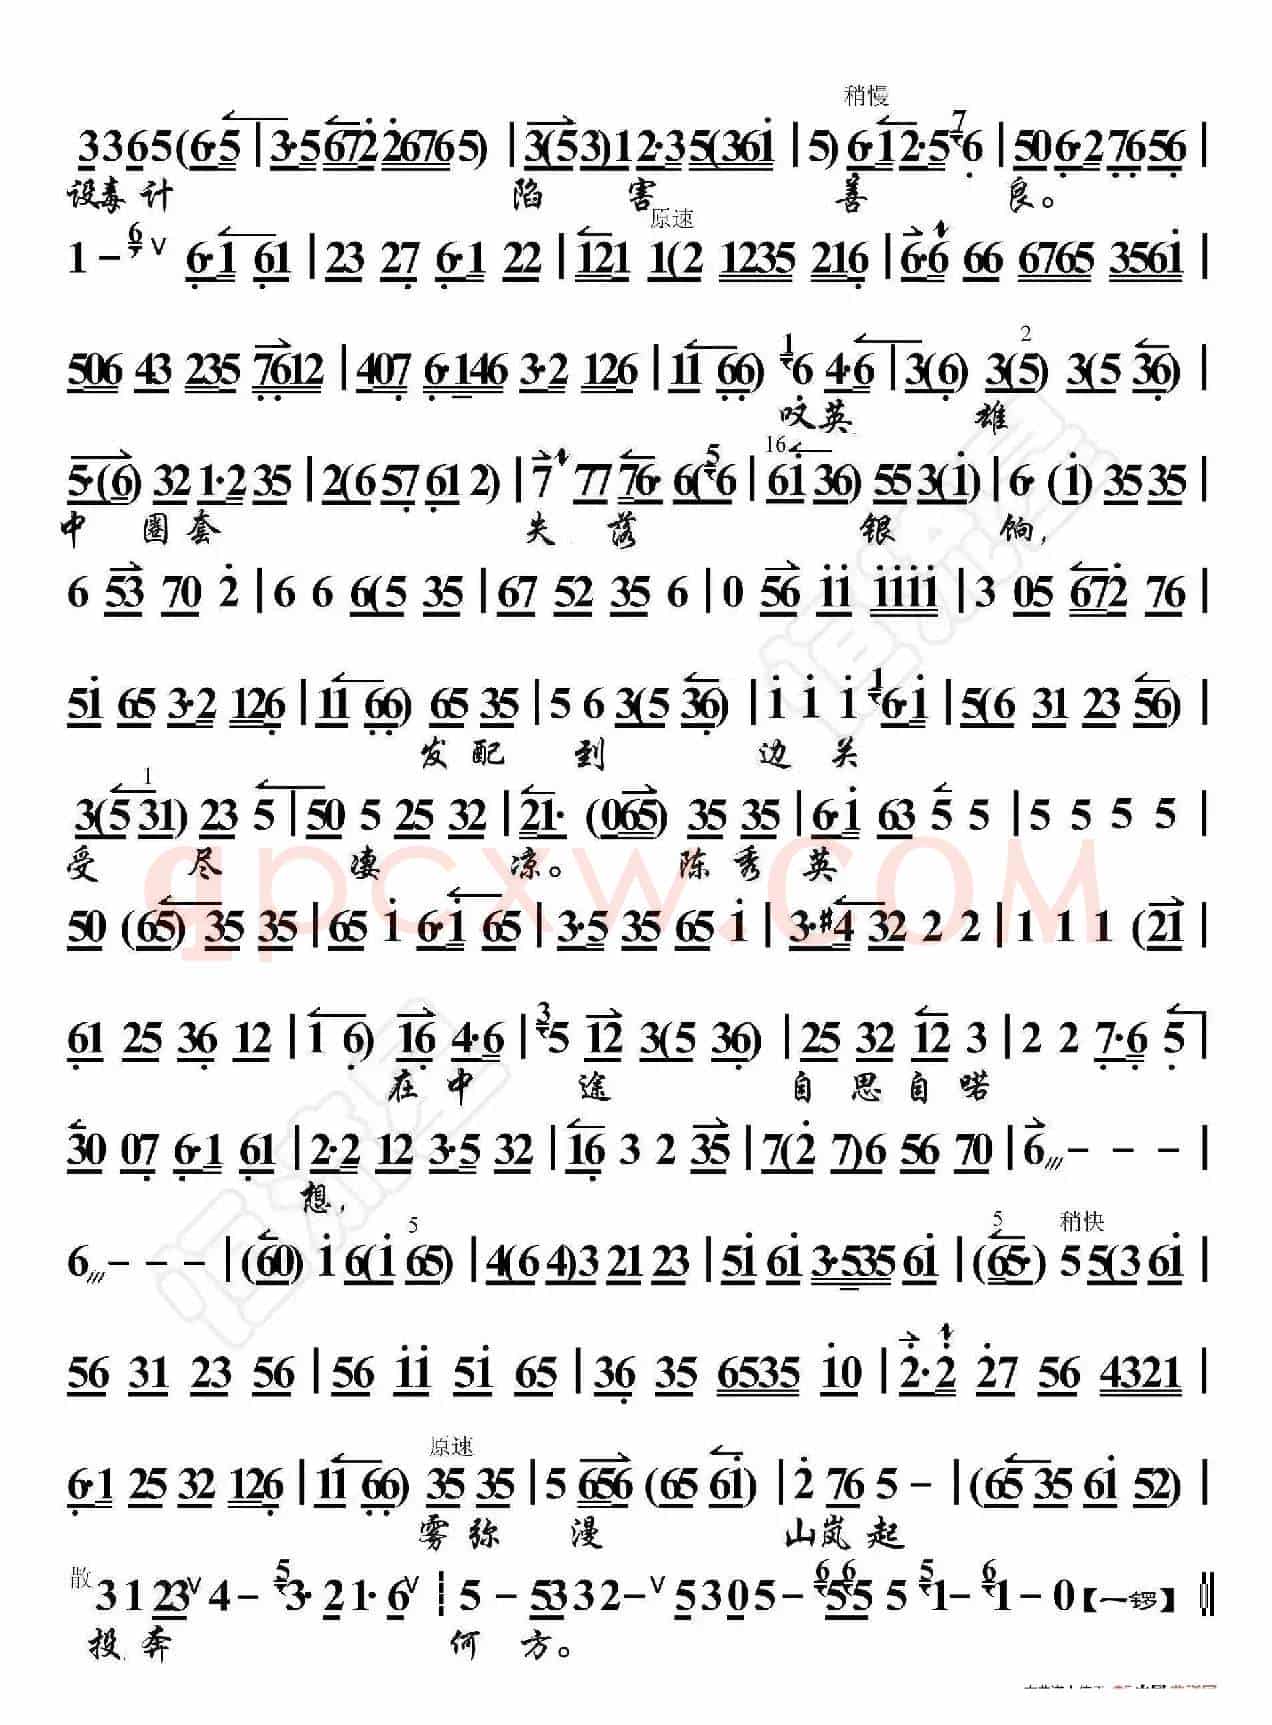 稍慢
3365(6·5|3·5672̇2̇6765)|3(53)12·35(3361i̇|5)6·12·5⁷6|506·2765​6|
设毒计 陷 害 善 良。
原速
1-⁶∨ 6·1 61|23 27 6·1 22|121 1(2 1235 216|6·6 66 6765 3561̇|
506 43 235 7612|407 6·146 3·2 126|11 66) ¹6 4·6|3(6) 3(5) 3(5 36)|
叹英 雄
5·(6) 32 1·2 35|2(6 57 612)|7 77 76· 6(⁵6|61̇ 36) 55 3(1̇)|6· (1̇) 35 35|
中 圈套 失 落 银 饷,
6 53 70 2̇|6 6 6(5 35|67 52 35 6|0 56 1̇1̇ 1̇1̇1̇1̇|3 05 672̇ 76|
51̇ 65 3·2 126|11 66) 65 35|5 6 3(5 36)|1̇ 1̇ 1̇ ¹6·1̇|5(6 31 23 56)|
发 配 到 边 关
3(5 31) 23 5|50 5 25 32|21· (065) 35 35|6·1̇ 63 5 5|5 5 5 5|
受 尽 凄 凉。 陈 秀 英
50 (65) 35 35|65 1̇ 6·1̇ 65|3·5 35 65 1̇|3·#4 32 2 2|1 1 1 (21|
61 25 36 12|1 6) 16 4·6|³5 12 3(5 36)|25 32 12 3|2 2 7·6 5|
在 中 途 自 思 自 喏
30 07 6·1 61|2·2 12 3·5 32|16 3 2 35|7(2̇ 7)6 56 70|6 - - -|
想,
稍快
6 - - -|(60) 1̇ 6(1̇ 65)|4(6 4)3 21 23|51̇ 61̇ 3·535 61̇|(65·) 5 5(3 61̇|
56 31 23 56|56 1̇1̇ 51̇ 65|36 35 6535 1̇0|2̇·2̇ 2̇7 56 4321|
原速
6·1 25 32 126|11 66) 35 35|5 656 (65 61̇)|2̇ 76 5 -|(65 35 61̇ 52)|
雾 弥 漫 山 岚 起
散 3 1 23∨ 4- ⁵3· 21· 6∨ ┆ 5 - 5332-∨ 5305- ⁶5⁶5 5 ⁵1- ⁶1-0【一锣】‖
投 奔 何 方。
qpcxw.COM
恒流星
恒流星